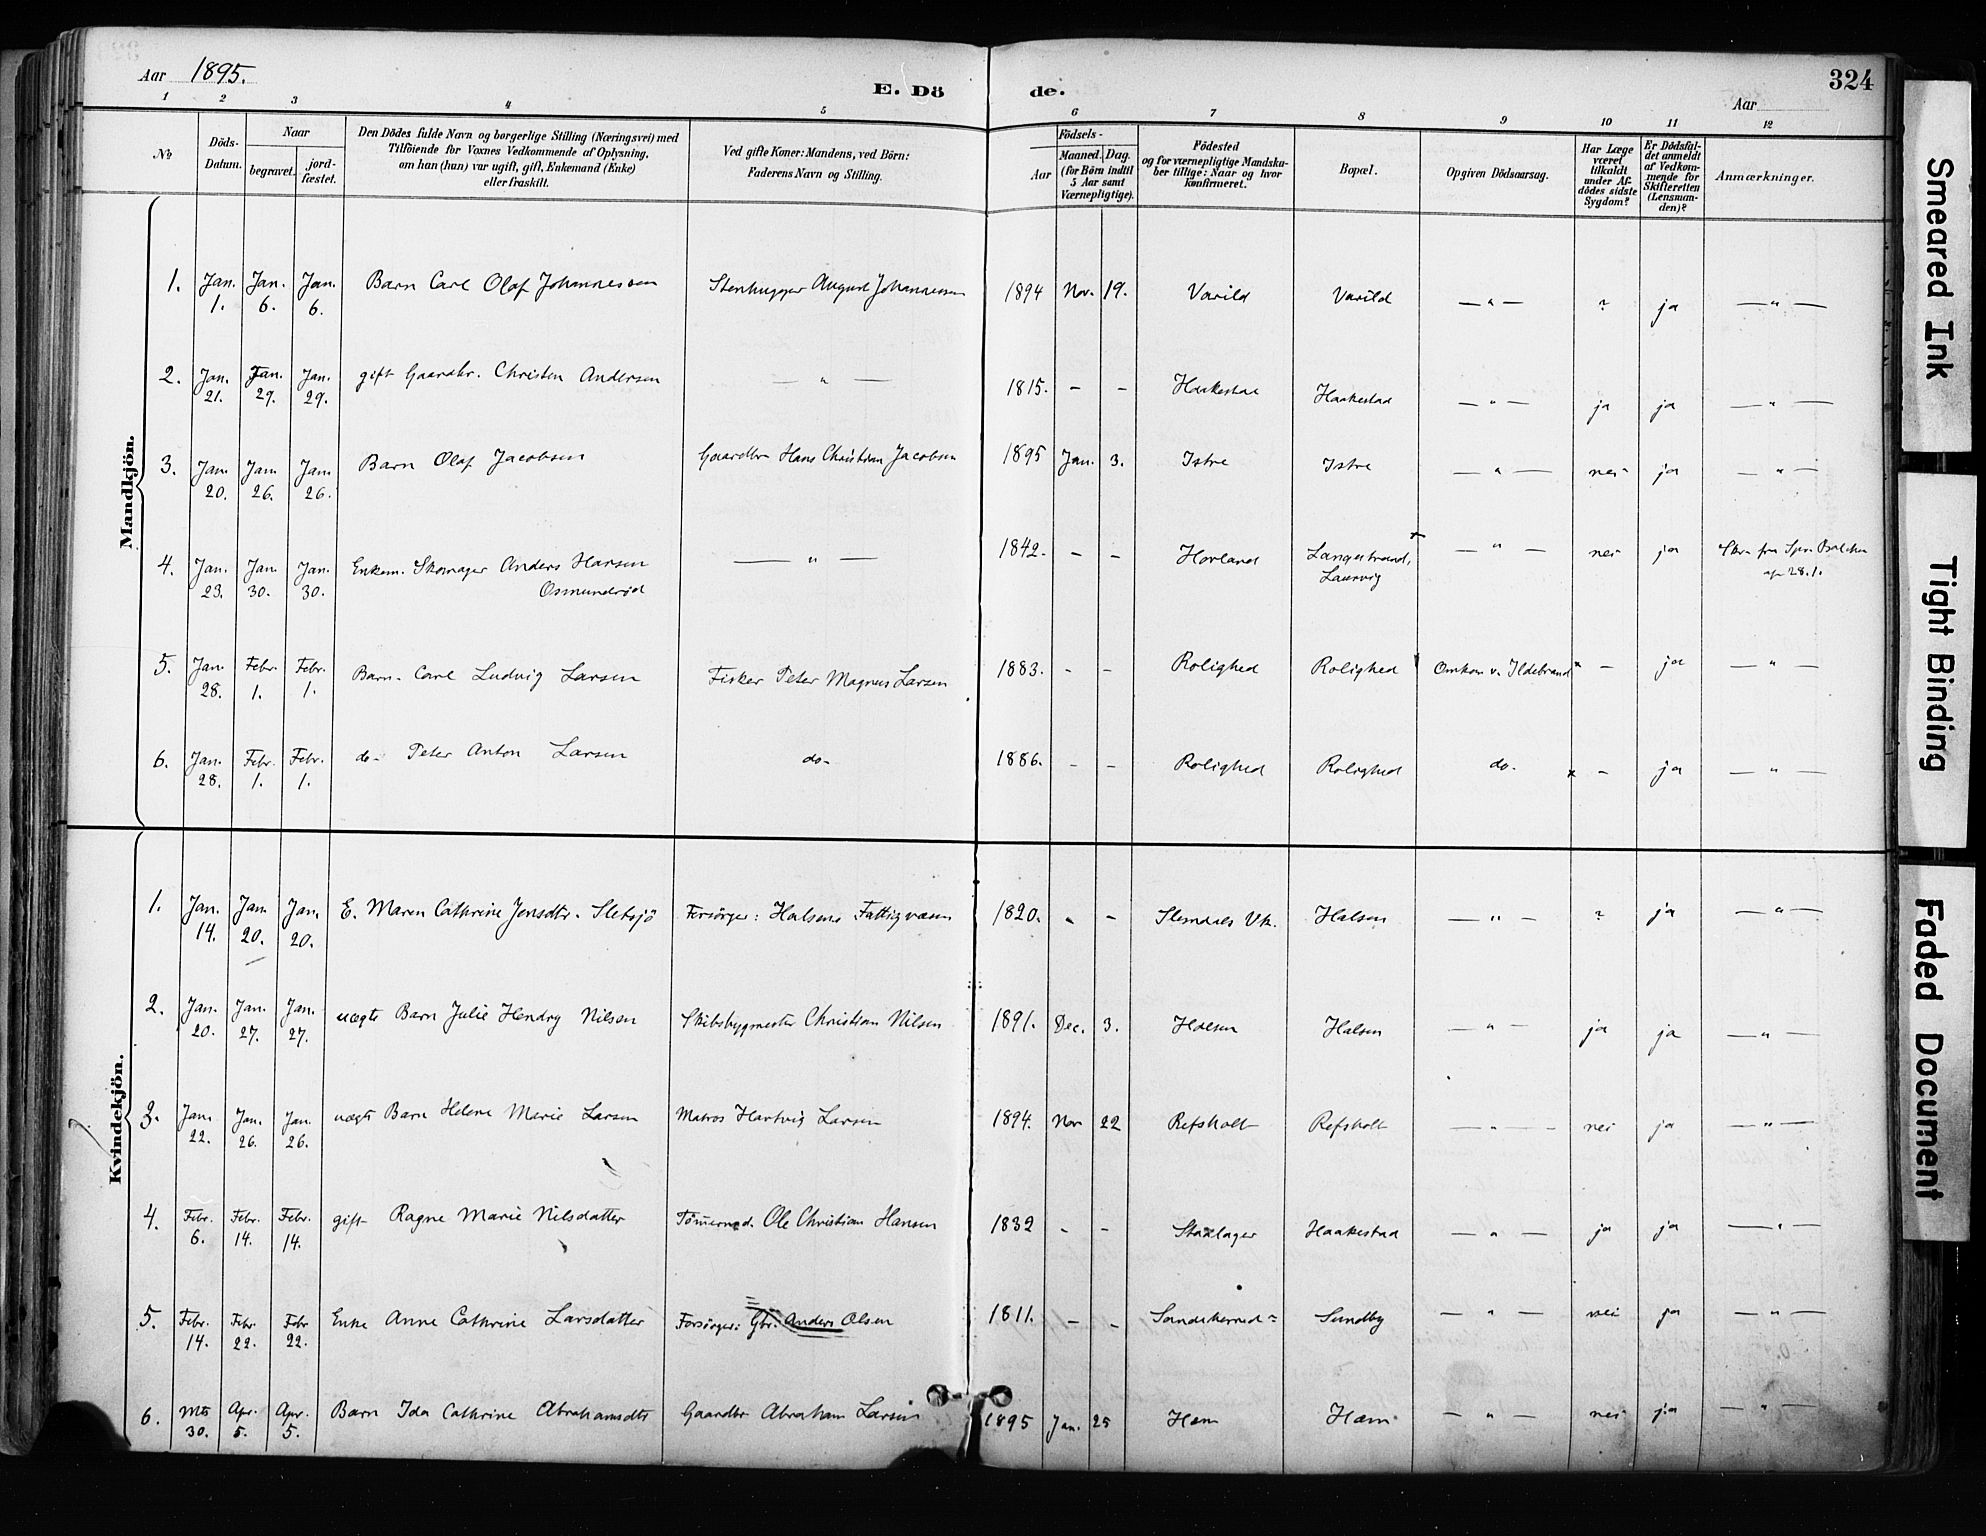 Aar 1895.
E. Döde.
324
Aar
1 2 3 4 5 6 7 8 9 10 11 12
No
Döds-Datum.
Naar
begravet.
jordfæstet.
Den Dödes fulde Navn og borgerlige Stilling (Næringsvei) med
Tilföiende for Voxnes Vedkommende af Oplysning,
om han (hun) var ugift, gift, Enkemand (Enke)
eller fraskilt.
Ved gifte Koner: Mandens, ved Börn:
Faderens Navn og Stilling.
Födsels-
Aar
Maaned. Dag.
(for Börn indtil
5 Aar samt
Værnepligtige).
Födested
og for værnepligtige Mandska-
ber tillige: Naar og hvor
konfirmeret.
Bopæl.
Opgiven Dödsaarsag.
Har Læge
været
tilkaldt
under Af-
dödes sidste
Sygdom?
Er Dödsfal-
det anmeldt
af Vedkom-
mende for
Skifteretten
(Lensman-
den)?
Anmærkninger.
Mandkjön.
1. Jan. 1. Jan. 6. Jan. 6. Barn Carl Olaf Johannessen Stenhugger August Johannessen 1894 Nov. 19. Varild Varild — " — ? ja — " —
2. Jan. 21. Jan. 29. Jan. 29. gift Gaardbr. Christen Andersen — " — 1815. - - Haakestad Haakestad — " — ja ja — " —
3. Jan. 20. Jan. 26. Jan. 26. Barn Olaf Jacobsen Gaardbr Hans Christian Jacobsen 1895 Jan. 3. Istre Istre — " — nei ja — " —
4. Jan. 23. Jan. 30. Jan. 30. Enkem. Skomager Anders Hansen
Osmundrød — " — 1842. - - Hovland Langestrand,
Laurvig — " — nei ja fra
28.1.
5. Jan. 28. Febr. 1. Febr. 1. Barn. Carl Ludvig Larsen Fisker Peter Magnus Larsen 1883. - - Rolighed Rolighed Omkom v. Ildebrand x - ja — " —
6. Jan. 28. Febr. 1. Febr. 1. do- Peter Anton Larsen do- 1886. - - Rolighed Rolighed do. x - ja — " —
Kvindekjön.
1. Jan. 14. Jan. 20. Jan. 20. E. Maren Cathrine Jensdtr. Sletsjö Forsörger: Halsens Fattigvæsen 1820. - - Slemdals Vk. Halsen — " — ? ja — " —
2. Jan. 20. Jan. 27. Jan. 27. uægte Barn Julie Hendry Nilsen Skibsbygmester Christian Nilsen 1891. Dec. 3. Halsen Halsen — " — ja ja — " —
3. Jan. 22. Jan. 26. Jan. 26. uægte Barn Helene Marie Larsen Matros Hartvig Larsen 1894. Nov 22 Refsholt Refsholt — " — nei ja — " —
4. Febr. 6. Febr. 14. Febr. 14. gift Ragne Marie Nilsdatter Tömermd. Ole Christian Hansen 1832 - - Staxlager Haakestad — " — ja ja — " —
5. Febr. 14. Febr. 22. Febr 22. Enke Anne Cathrine Larsdatter Forsörger: Gbr. Anders Olsen 1811. - - Sundby — " — nei ja — " —
6. Mts 30. Apr. 5. Apr. 5. Barn Ida Cathrine Abrahamsdtr Gaardbr Abraham Larsen 1895 Jan. 25 Hem Hem — " — nei ja — " —
Smeared Ink
Tight Binding
Faded Document